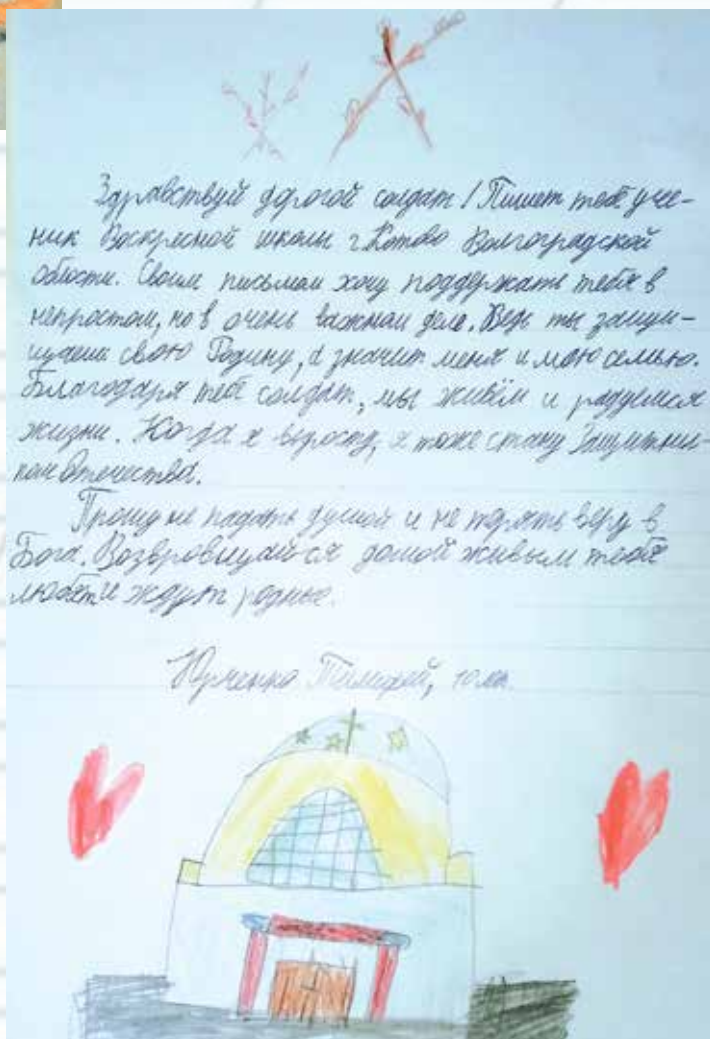 Здравствуй дорогой солдат! Пишет тебе уче-
ник Воскресной школы г. Котово Волгоградской
области. Своим письмом хочу поддержать тебя в
непростом, но в очень важном деле. Ведь ты защи-
щаеш свою Родину, а значит меня и мою семью.
Благодаря тебе солдат, мы живём и радуемся
жизни. Когда я вырасту, я тоже стану Защитни-
ком Отечества.
Прошу не падать душой и не терять веру в
Бога. Возвровщайся домой живым тебя
любят и ждут родные.
Юрченко Тимофей, 10 лет.